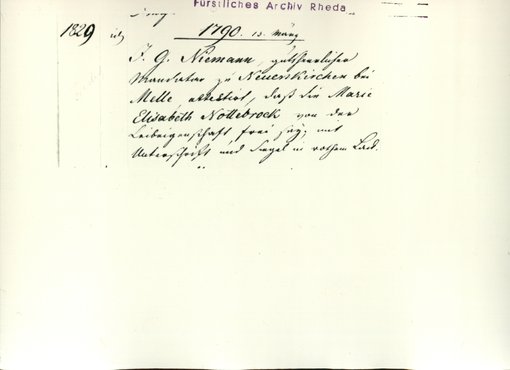 Fürstliches Archiv Rheda
1829
1790. 13. März
J. G. Niemann, gutsherrlicher
Mandatar zu Neuenkirchen bei
Melle attestirt, daß die Marie
Elisabeth Nottebrock von der
Leibeigenschaft frei sey, mit
Unterschrift und Siegel in rothem Lack.